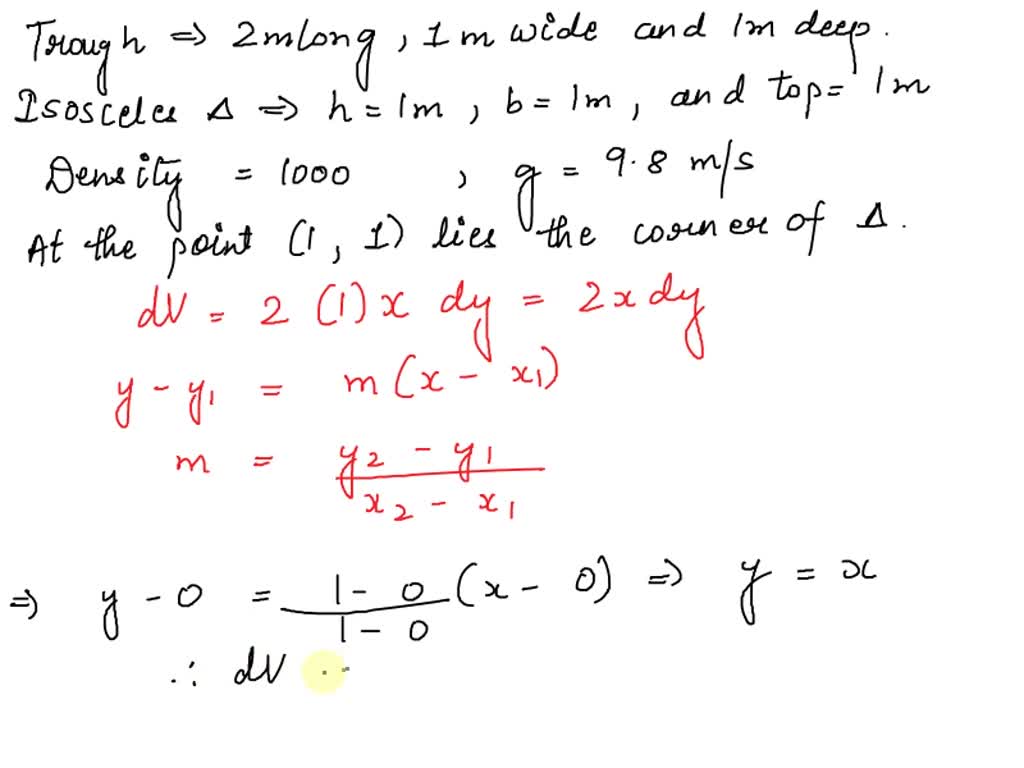 Trough ⇒ 2m long, 1m wide and 1m deep.
Isosceles Δ ⇒ h = 1m, b = 1m, and top = 1m
Density = 1000 , g = 9.8 m/s
At the point (1, 1) lies the corner of Δ.
dV = 2 (1) x dy = 2x dy
y - y₁ = m (x - x₁)
m = (y₂ - y₁)/(x₂ - x₁)
⇒ y - 0 = (1 - 0)/(1 - 0) (x - 0) ⇒ y = x
∴ dV